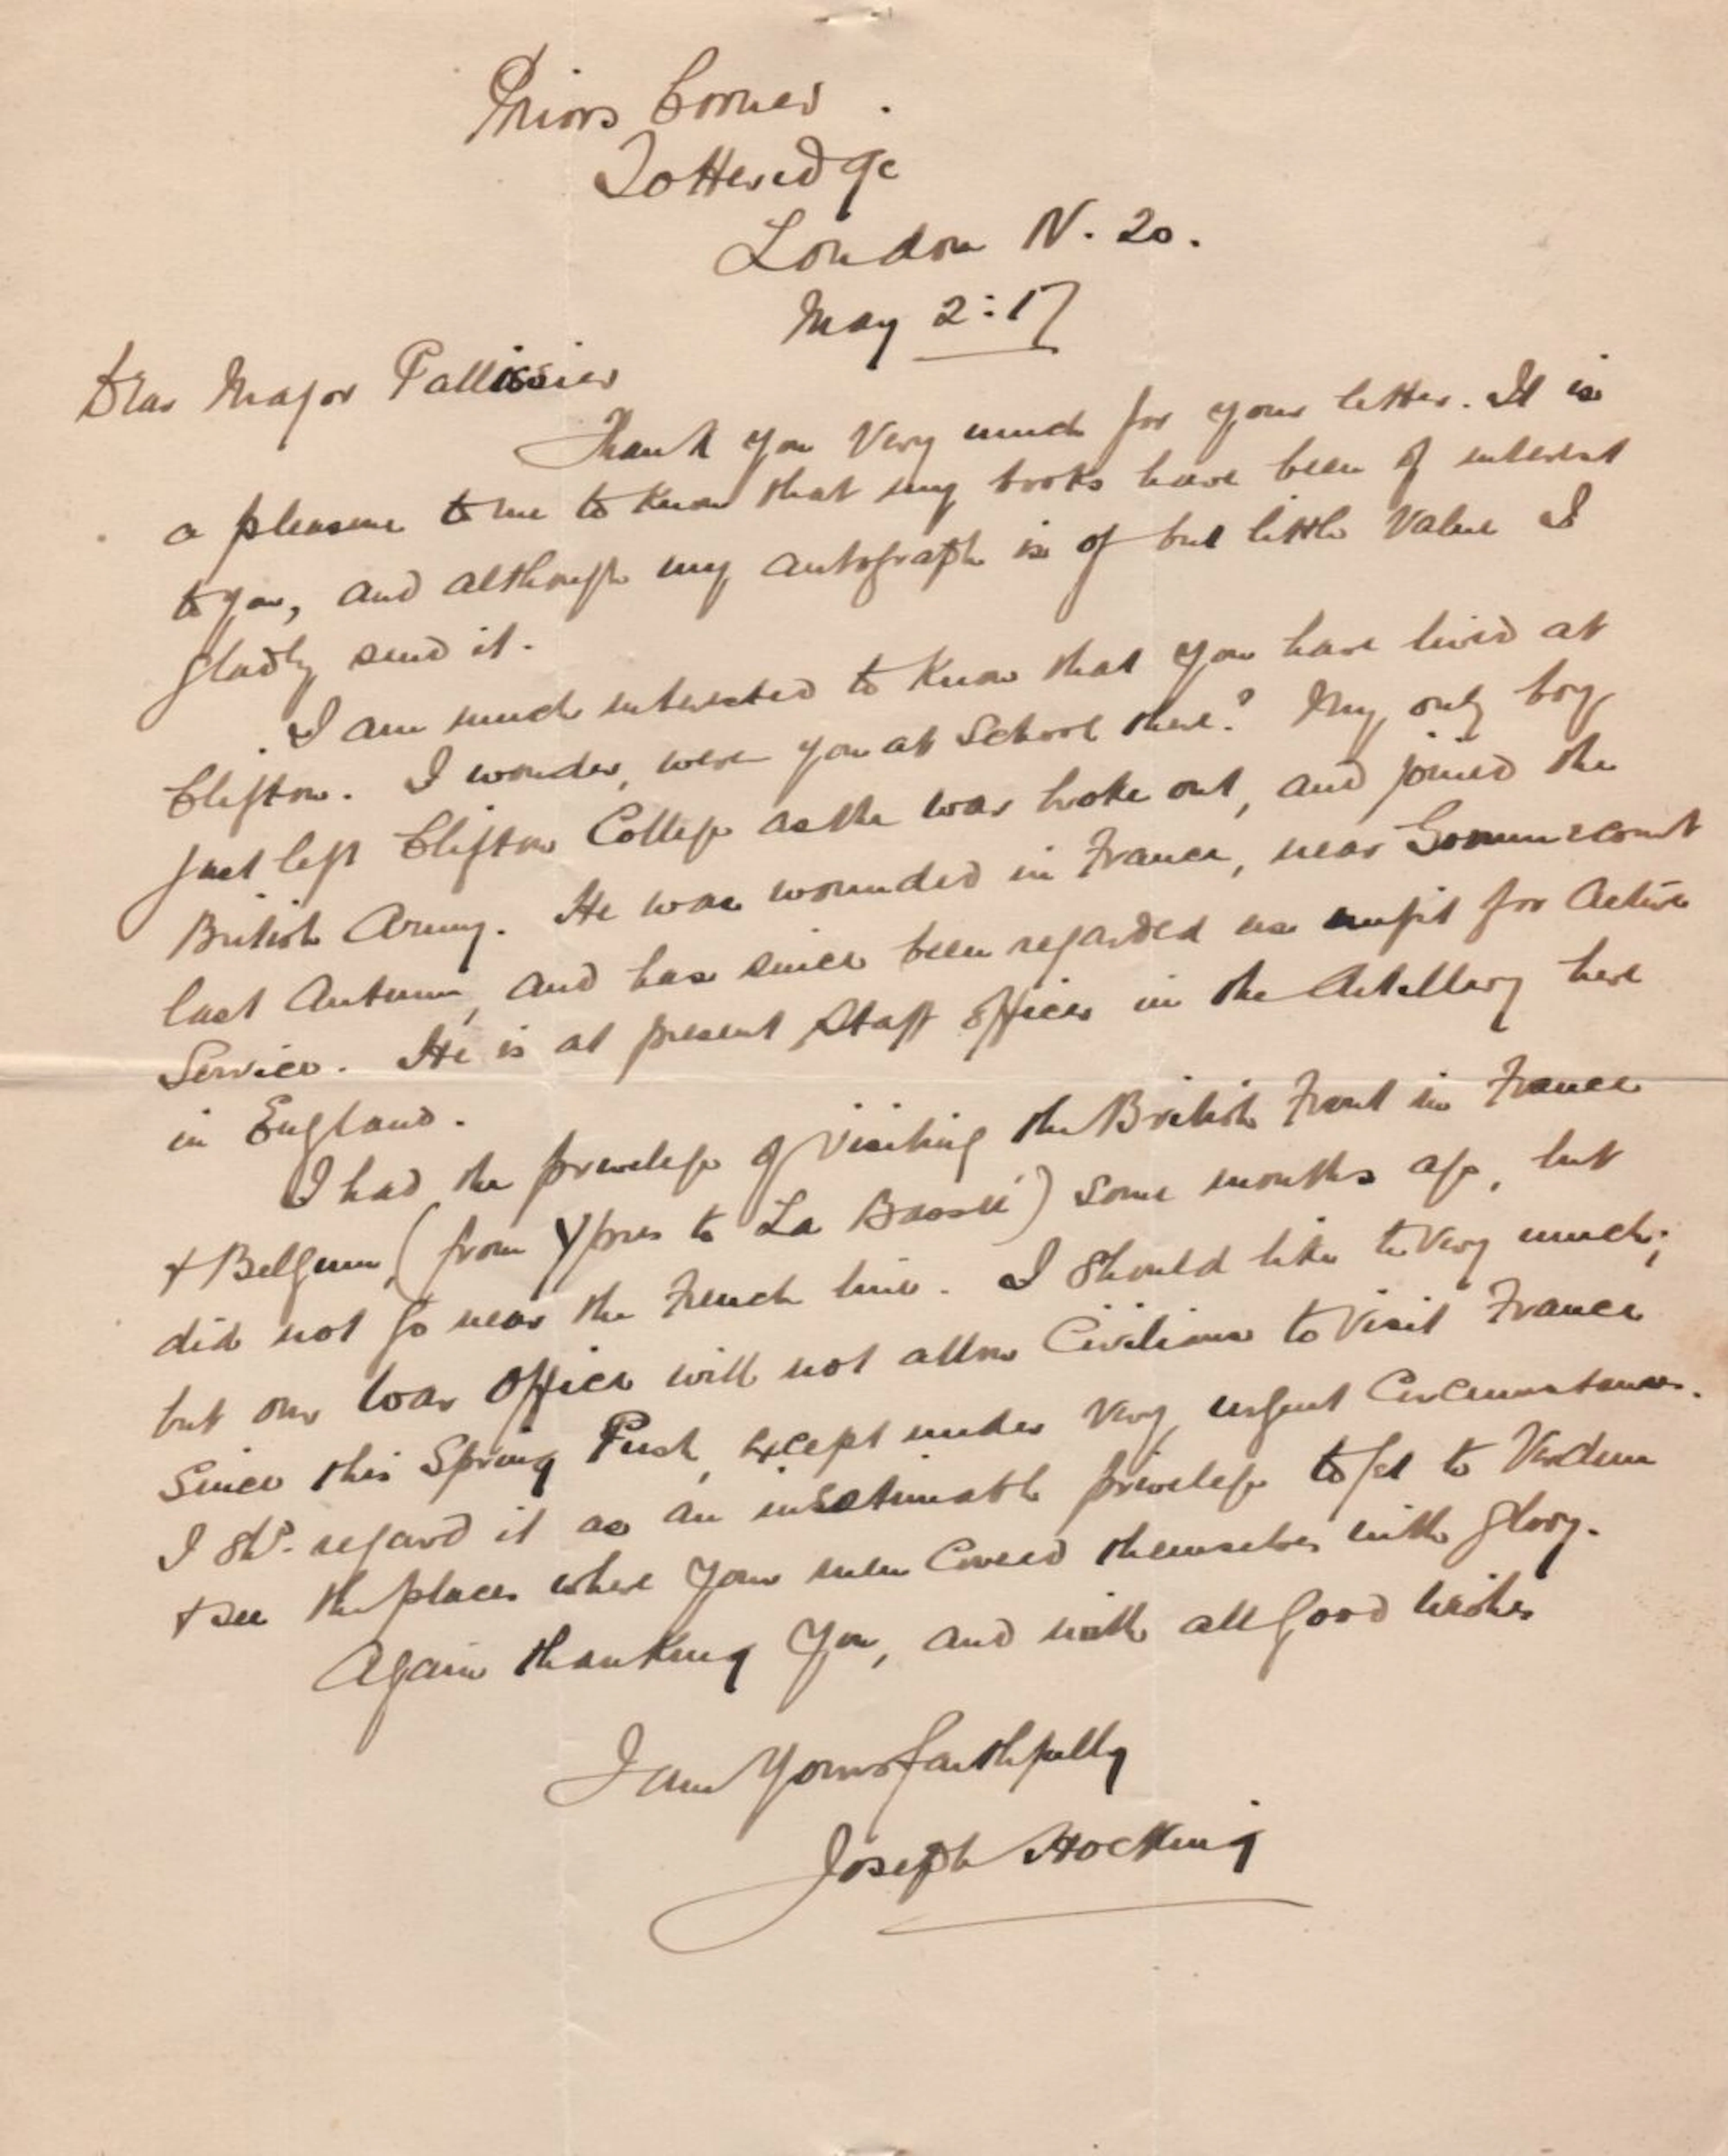 Priors Corner.
Totteridge
London N. 20.
May 2:17
Dear Major Pallissier
Thank you very much for your letter. It is
a pleasure to me to know that my books have been of interest
to you, and although my autograph is of but little value I
gladly send it.
I am much interested to know that you have lived at
Clifton. I wonder, were you at School there? My only boy
just left Clifton College as the war broke out, and joined the
British Army. He was wounded in France, near Gommecourt
last Autumn, and has since been regarded as unfit for Active
Service. He is at present Staff Officer in the Artillery here
in England.
I had the privelege of visiting the British Front in France
+ Belgium, (from Ypres to La Bassée) some months ago, but
did not go near the French line. I should like to very much;
but our War Office will not allow Civilians to visit France
since this Spring Push, except under very urgent Circumstances.
I shd. regard it as an inestimable privelege to get to Verdun
+ see the places where your men covered themselves with glory.
Again thanking you, and with all good wishes
I am Yours faithfully
Joseph Hocking